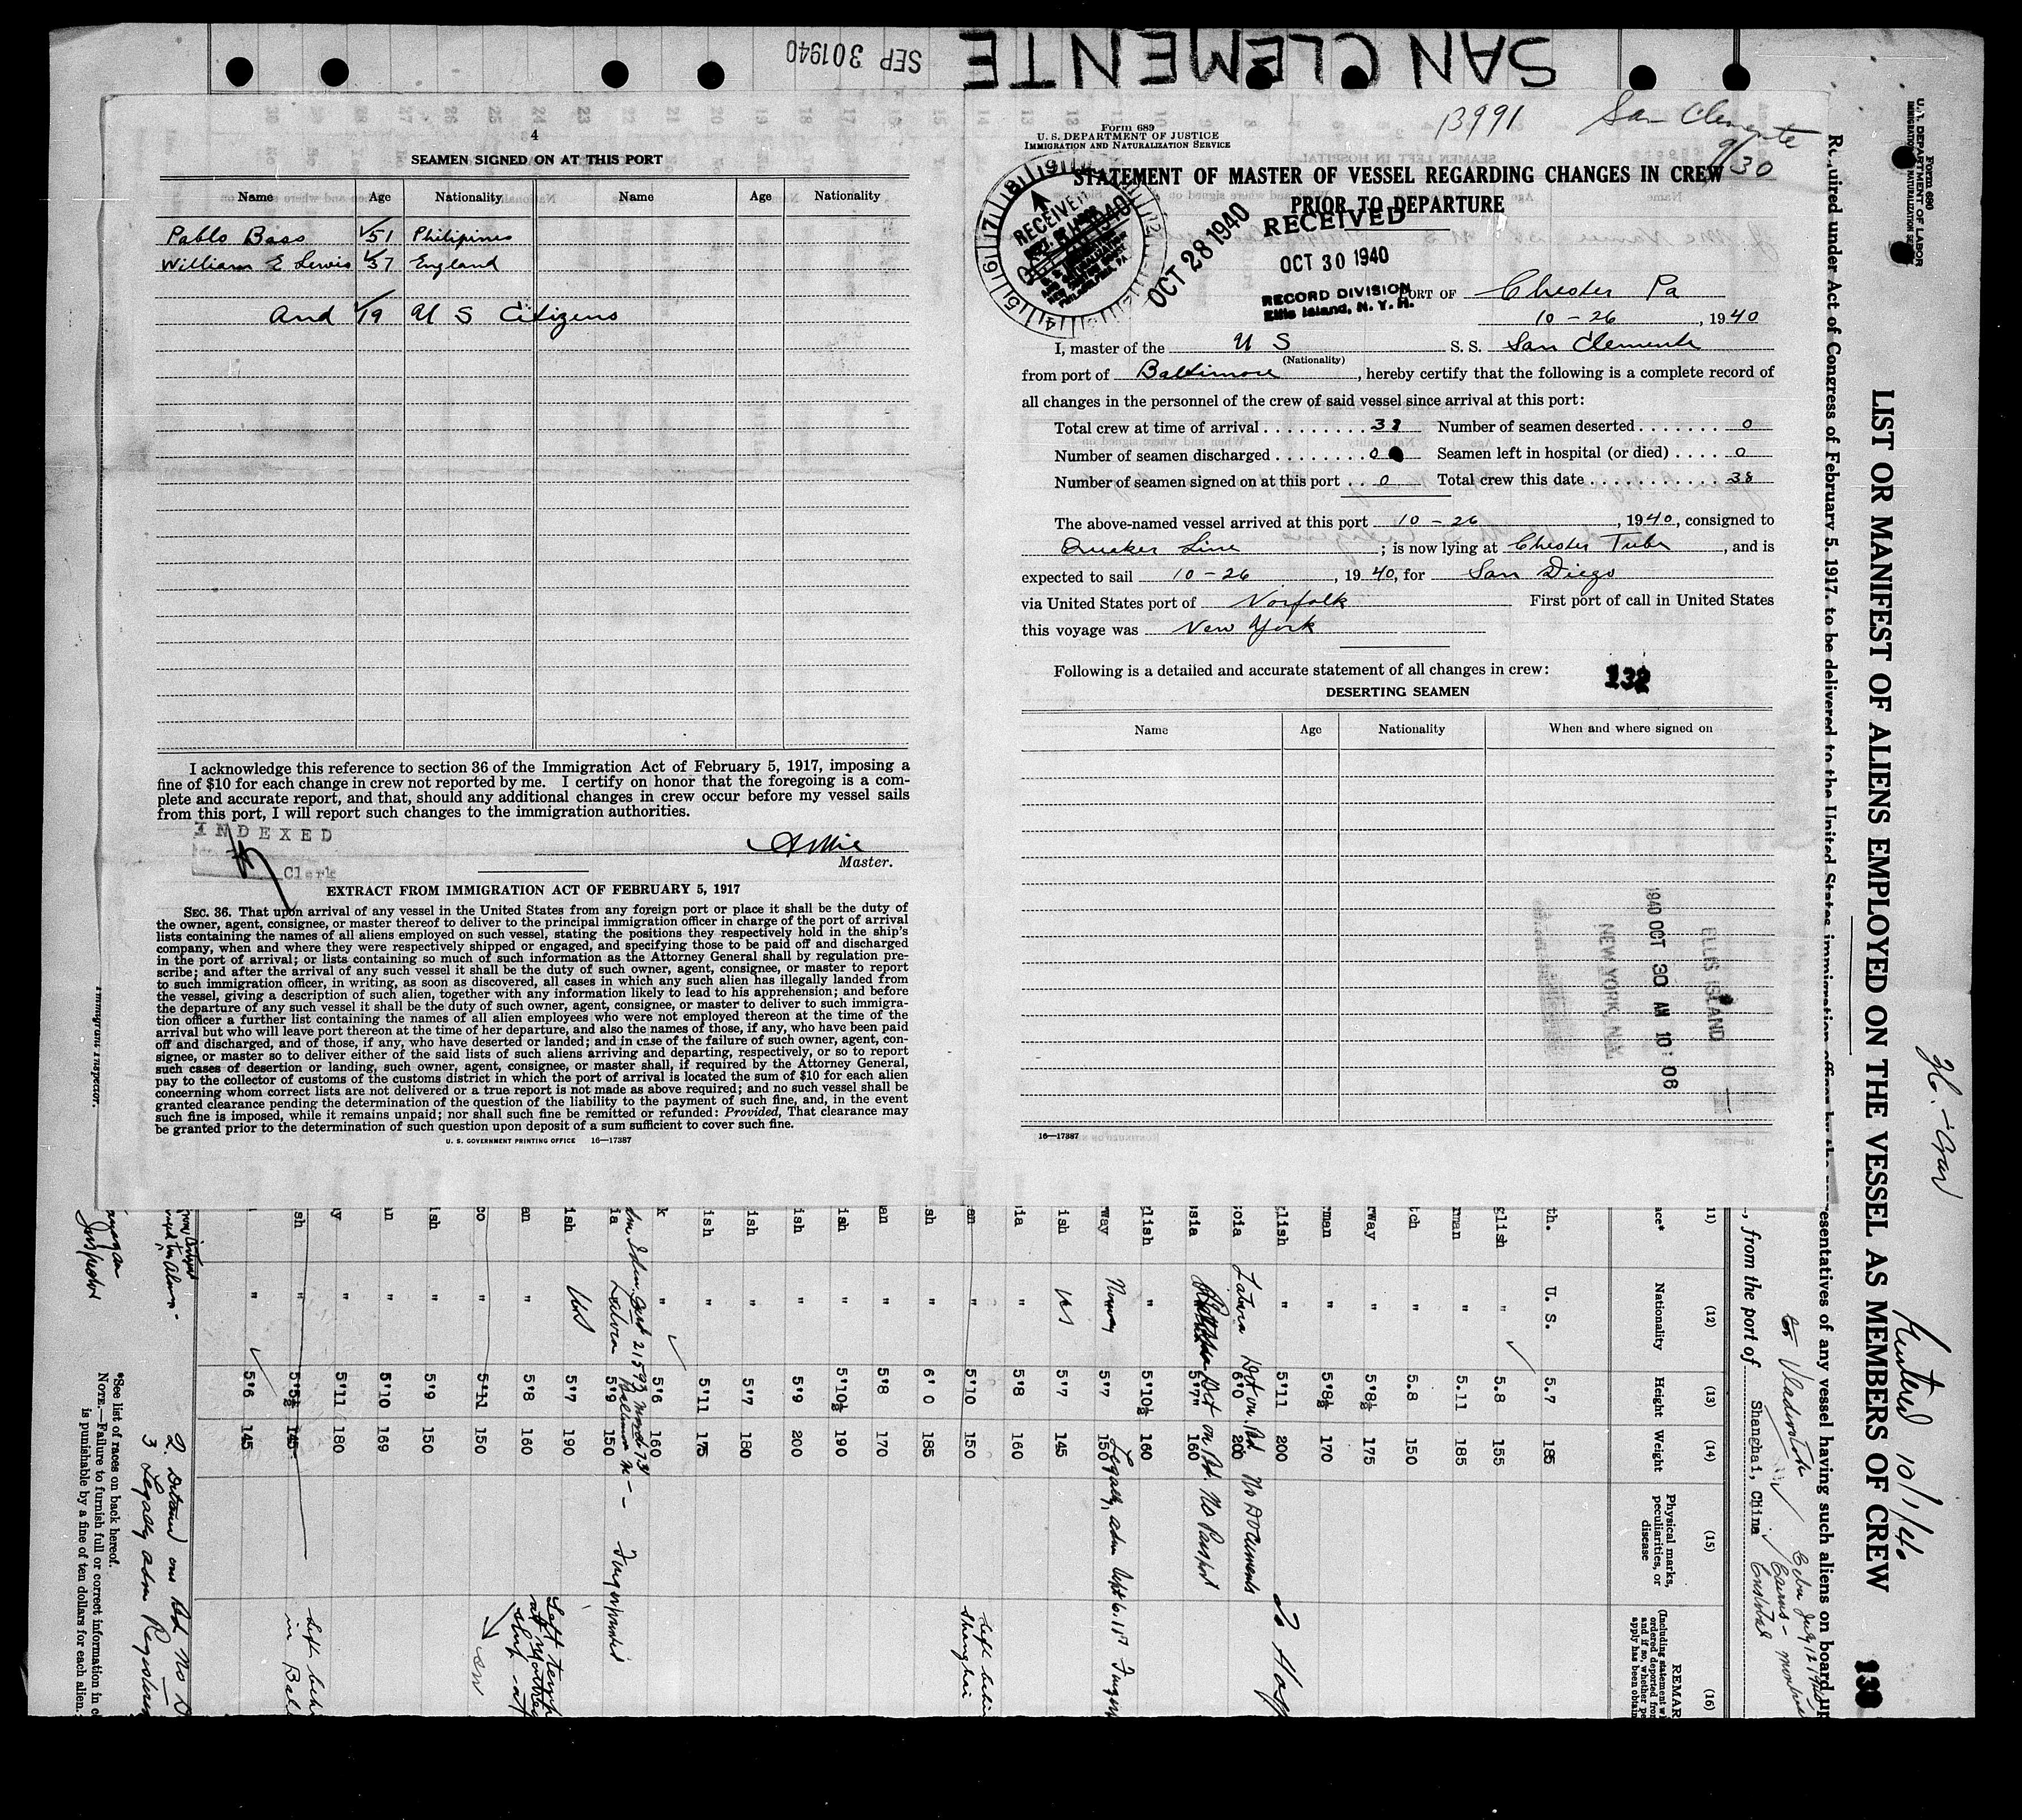 SAN CLEMENTE
SEP 30 1940
4
SEAMEN SIGNED ON AT THIS PORT
Name Age Nationality Name Age Nationality
Pablo Bass 51 Philipines
William E Lewis 37 England
And 19 U S Citizens
I acknowledge this reference to section 36 of the Immigration Act of February 5, 1917, imposing a
fine of $10 for each change in crew not reported by me. I certify on honor that the foregoing is a com-
plete and accurate report, and that, should any additional changes in crew occur before my vessel sails
from this port, I will report such changes to the immigration authorities.
INDEXED
Clerk
Master.
EXTRACT FROM IMMIGRATION ACT OF FEBRUARY 5, 1917
SEC. 36. That upon arrival of any vessel in the United States from any foreign port or place it shall be the duty of
the owner, agent, consignee, or master thereof to deliver to the principal immigration officer in charge of the port of arrival
lists containing the names of all aliens employed on such vessel, stating the positions they respectively hold in the ship's
company, when and where they were respectively shipped or engaged, and specifying those to be paid off and discharged
in the port of arrival; or lists containing so much of such information as the Attorney General shall by regulation pre-
scribe; and after the arrival of any such vessel it shall be the duty of such owner, agent, consignee, or master to report
to such immigration officer, in writing, as soon as discovered, all cases in which any such alien has illegally landed from
the vessel, giving a description of such alien, together with any information likely to lead to his apprehension; and before
the departure of any such vessel it shall be the duty of such owner, agent, consignee, or master to deliver to such immigra-
tion officer a further list containing the names of all alien employees who were not employed thereon at the time of the
arrival but who will leave port thereon at the time of her departure, and also the names of those, if any, who have been paid
off and discharged, and of those, if any, who have deserted or landed; and in case of the failure of such owner, agent, con-
signee, or master so to deliver either of the said lists of such aliens arriving and departing, respectively, or so to report
such cases of desertion or landing, such owner, agent, consignee, or master shall, if required by the Attorney General,
pay to the collector of customs of the customs district in which the port of arrival is located the sum of $10 for each alien
concerning whom correct lists are not delivered or a true report is not made as above required; and no such vessel shall be
granted clearance pending the determination of the question of the liability to the payment of such fine, and, in the event
such fine is imposed, while it remains unpaid; nor shall such fine be remitted or refunded: Provided, That clearance may
be granted prior to the determination of such question upon deposit of a sum sufficient to cover such fine.
U. S. GOVERNMENT PRINTING OFFICE 16—17387
Immigrant Inspector.
13991 San Clemente
9/30
Form 689
U. S. DEPARTMENT OF JUSTICE
IMMIGRATION AND NATURALIZATION SERVICE
STATEMENT OF MASTER OF VESSEL REGARDING CHANGES IN CREW
PRIOR TO DEPARTURE
RECEIVED
OCT 28 1940
RECEIVED
OCT 30 1940
RECORD DIVISION
Ellis Island, N. Y. H.
PORT OF Chester Pa
10-26, 1940
I, master of the U S S. S. San Clemente
(Nationality)
from port of Baltimore, hereby certify that the following is a complete record of
all changes in the personnel of the crew of said vessel since arrival at this port:
Total crew at time of arrival 38 Number of seamen deserted 0
Number of seamen discharged 0 Seamen left in hospital (or died) 0
Number of seamen signed on at this port 0 Total crew this date 38
The above-named vessel arrived at this port 10-26, 1940, consigned to
Quaker Line; is now lying at Chester Tube, and is
expected to sail 10-26, 1940, for San Diego
via United States port of Norfolk First port of call in United States
this voyage was New York
Following is a detailed and accurate statement of all changes in crew: 132
DESERTING SEAMEN
Name Age Nationality When and where signed on
1940 OCT 30 AM 10:08
ELLIS ISLAND
NEW YORK, N.Y.
16—17387
Form 690
U. S. DEPARTMENT OF LABOR
IMMIGRATION AND NATURALIZATION SERVICE
LIST OR MANIFEST OF ALIENS EMPLOYED ON THE VESSEL AS MEMBERS OF CREW
Required under Act of Congress of February 5, 1917, to be delivered to the United States immigration officer by the representatives of any vessel having such aliens on board up
133
, from the port of Shanghai, China
Vladivostok
(11) (12) (13) (14) (15) (16)
Race* Nationality Height Weight Physical marks, peculiarities, or disease REMAR
th. U. S. 5.7 185
glish " 5.8 155
rman " 5.11 185
tch " 5.8 150
rway " 5'8½ 175
rman " 5'8½ 170
lish " 5'11 200 To Hosp
Latvia 6'0 200 Det on Bd. No Documents
5'7" 160 Det on Bd. No Passport
lish " 5'10½ 160
way Norway 5'7 150 Legally adm
ish US 5'7 145
ia " 5'8 160
an " 5'10 150 Left behin Shanghai
sh " 6'0 185
an " 5'8 170
ish " 5'10½ 190
ish " 5'9 200
ish " 5'7 180
ish " 5'11 175
k " 5'6 160
ia Latvia 5'9 150 Fingerprinted
ish US 5'7 190
an " 5'8 160
co " 5'11 150
ish " 5'9 150
an " 5'10 169
y " 5'11 180
sh " 5'5½ 145 Left behi in Bal
" 5'6 145
*See list of races on back hereof.
NOTE.—Failure to furnish full or correct information in c
is punishable by a fine of ten dollars for each alien.
Inspector